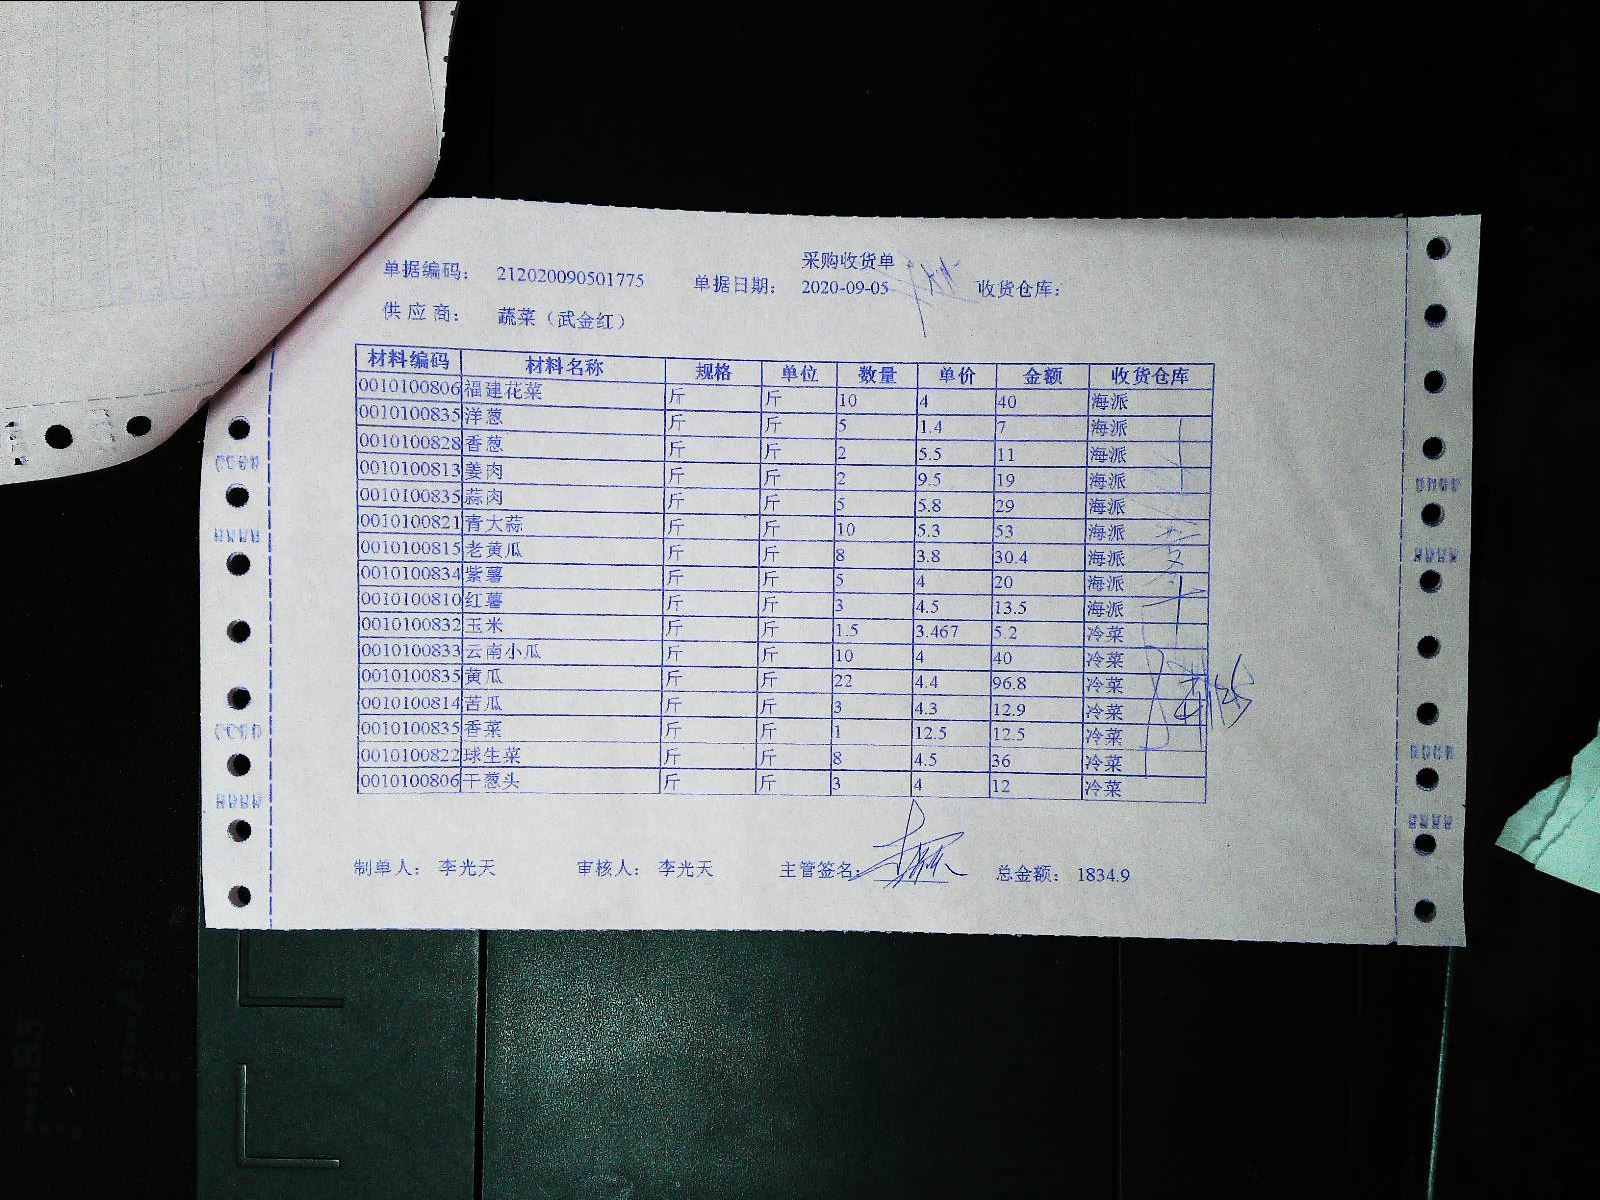 采购收货单
单据编码： 212020090501775 单据日期： 2020-09-05 收货仓库：
供 应 商： 蔬菜（武金红）
材料编码 材料名称 规格 单位 数量 单价 金额 收货仓库
0010100806 福建花菜 斤 斤 10 4 40 海派
0010100835 洋葱 斤 斤 5 1.4 7 海派
0010100828 香葱 斤 斤 2 5.5 11 海派
0010100813 姜肉 斤 斤 2 9.5 19 海派
0010100835 蒜肉 斤 斤 5 5.8 29 海派
0010100821 青大蒜 斤 斤 10 5.3 53 海派
0010100815 老黄瓜 斤 斤 8 3.8 30.4 海派
0010100834 紫薯 斤 斤 5 4 20 海派
0010100810 红薯 斤 斤 3 4.5 13.5 海派
0010100832 玉米 斤 斤 1.5 3.467 5.2 冷菜
0010100833 云南小瓜 斤 斤 10 4 40 冷菜
0010100835 黄瓜 斤 斤 22 4.4 96.8 冷菜
0010100814 苦瓜 斤 斤 3 4.3 12.9 冷菜
0010100835 香菜 斤 斤 1 12.5 12.5 冷菜
0010100822 球生菜 斤 斤 8 4.5 36 冷菜
0010100806 干葱头 斤 斤 3 4 12 冷菜
制单人： 李光天 审核人： 李光天 主管签名： 总金额： 1834.9